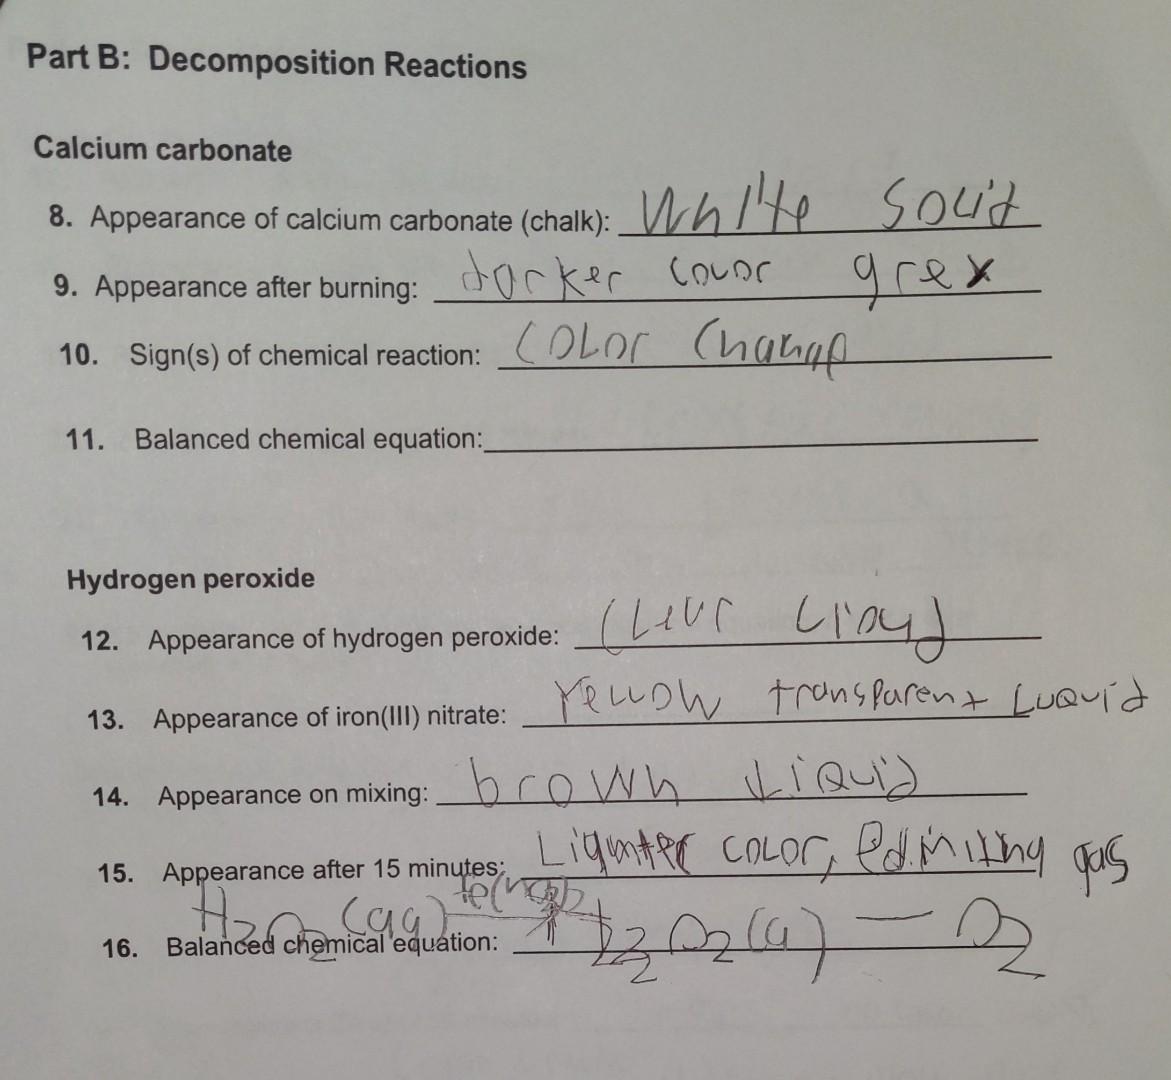 Part B: Decomposition Reactions
Calcium carbonate
8. Appearance of calcium carbonate (chalk): White Solid
9. Appearance after burning: darker color grey
10. Sign(s) of chemical reaction: Color Change
11. Balanced chemical equation:
Hydrogen peroxide
12. Appearance of hydrogen peroxide: Clear
13. Appearance of iron(III) nitrate: Yellow transparent Luquid
14. Appearance on mixing: brown Liquid
15. Appearance after 15 minutes: Lighter color, gas
H2O2 (aq)
16. Balanced chemical equation: O2 (g) — O2